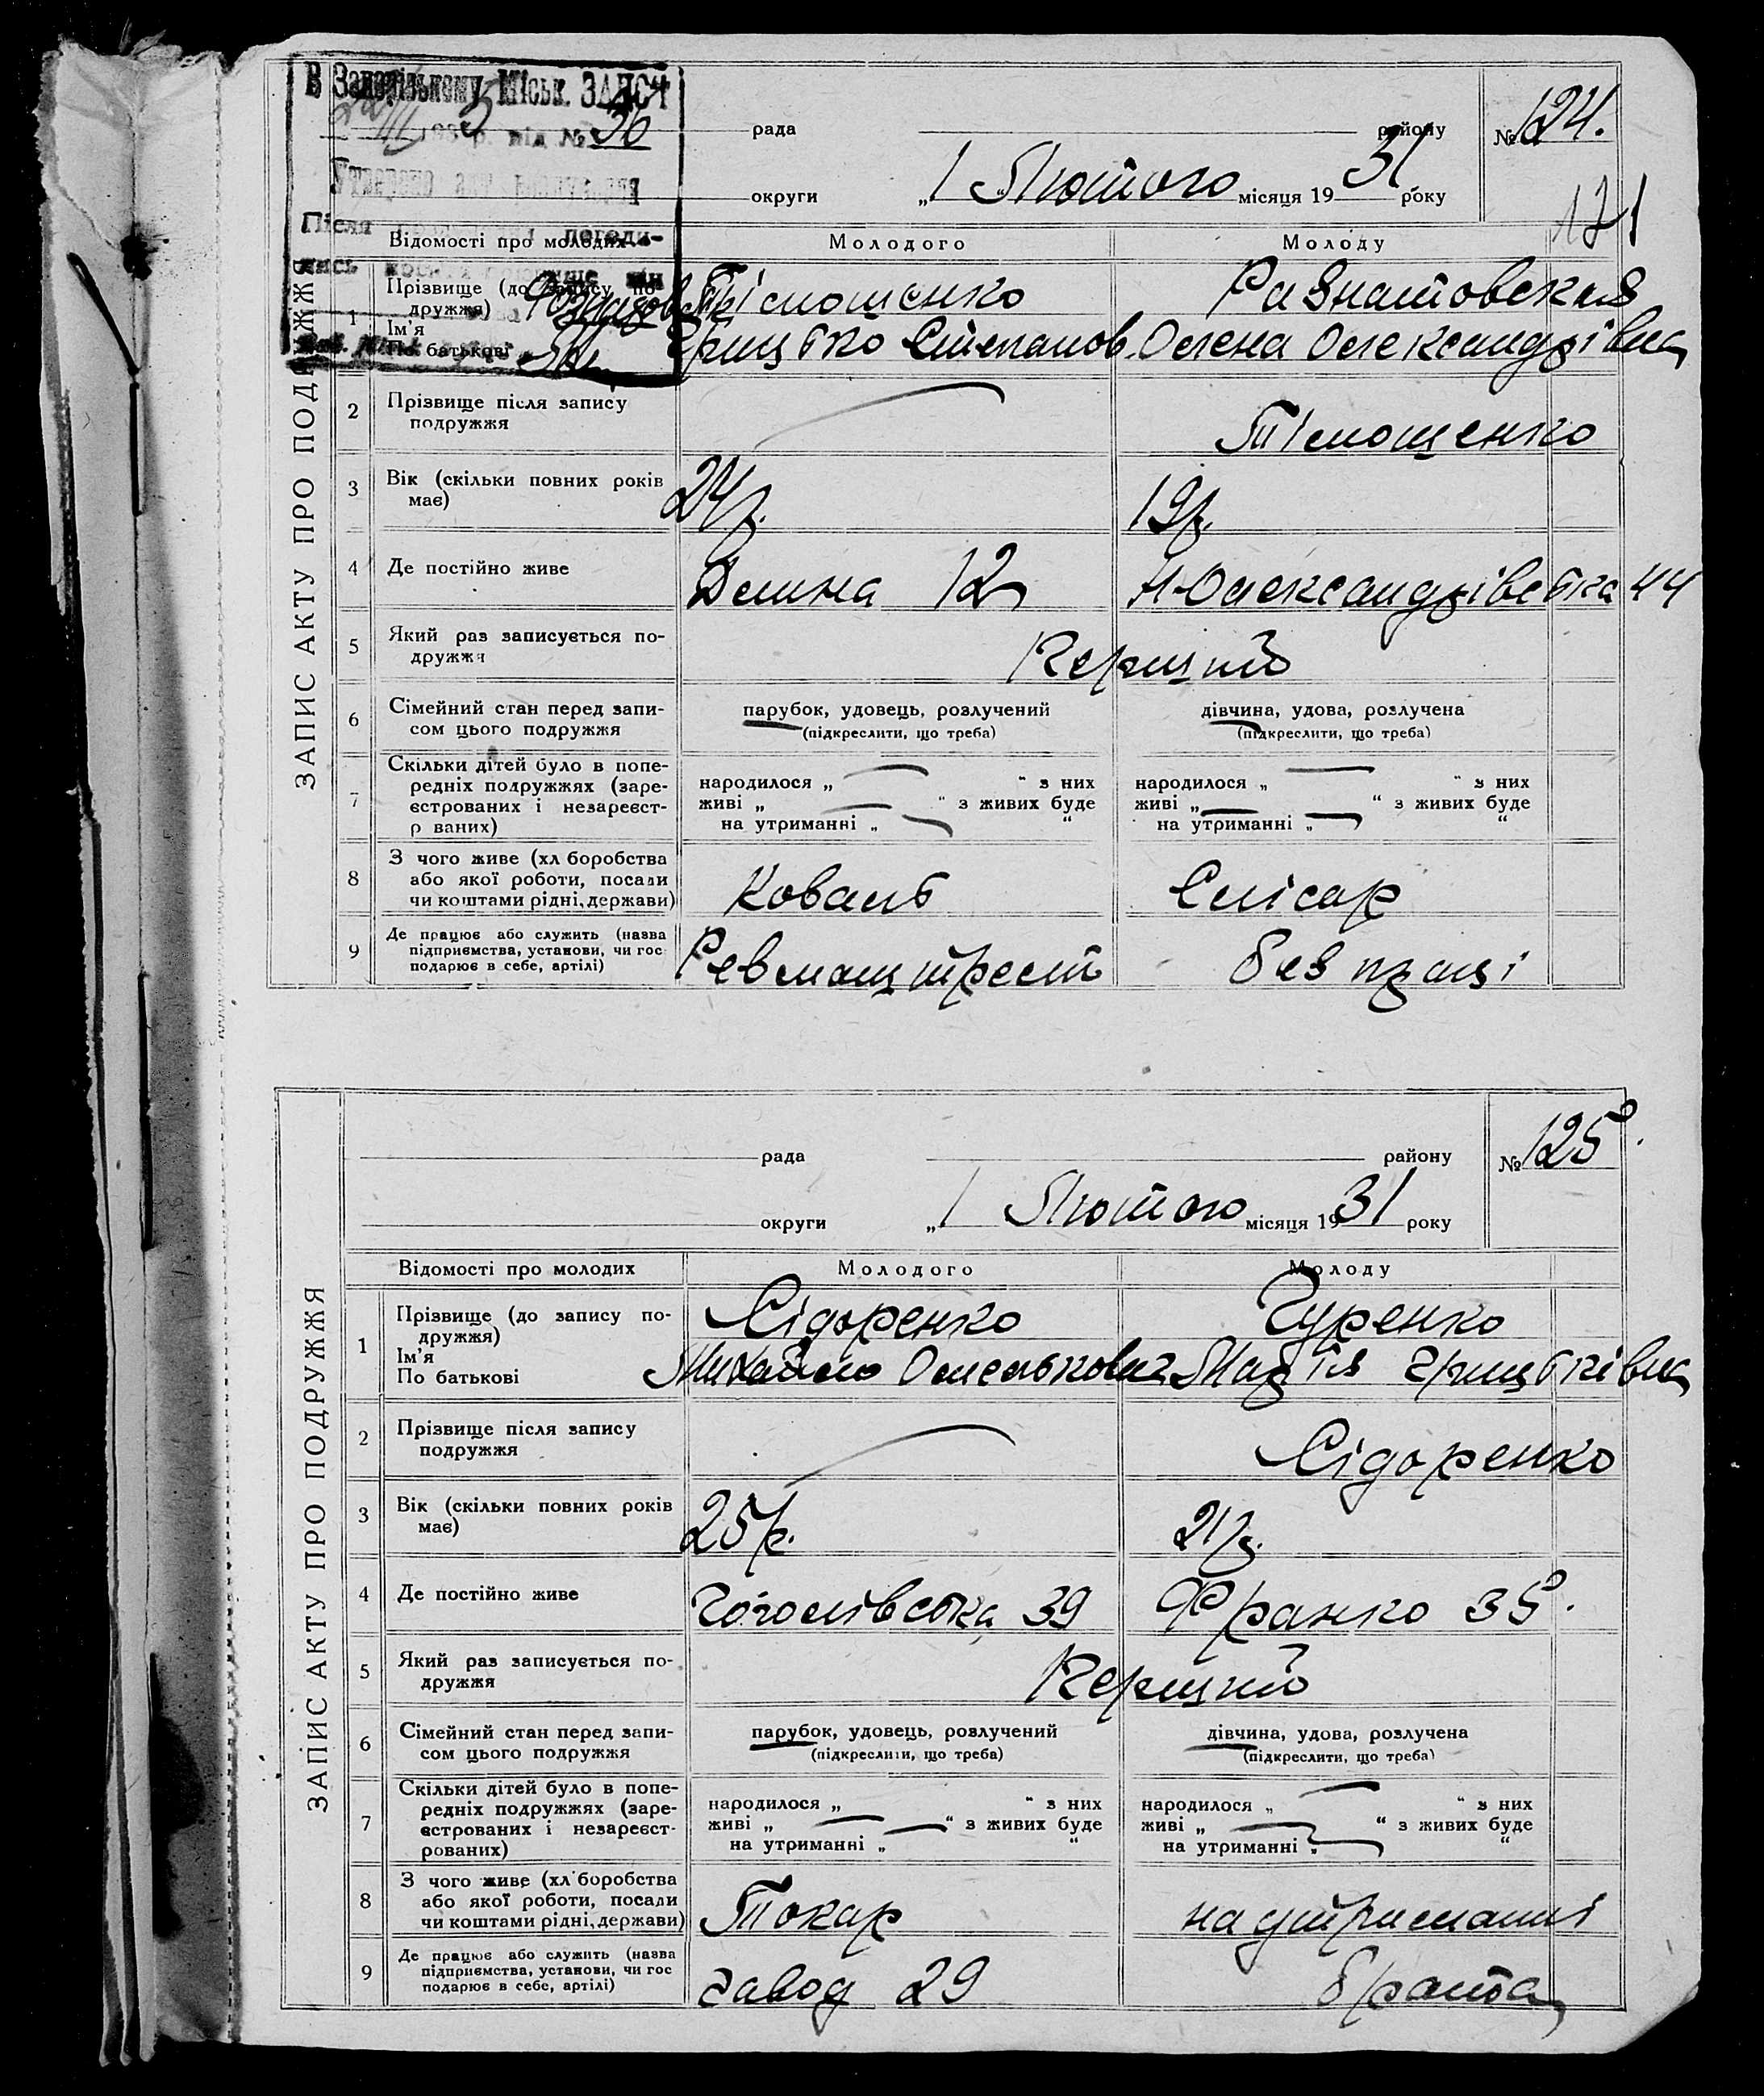 В Запорізькому Міськ. ЗАГСЧ
193 р. під № 36
Після погоди-
лись
рада району № 124.
округи „1 Лютого місяця 1931 року
171
ЗАПИС АКТУ ПРО ПОДРУЖЖЯ
Відомості про молодих Молодого Молоду
1 Прізвище (до запису по-
дружжя) Тімошенко
Ім'я
По батькові Грицько Степанов. Олена Олександрівна
2 Прізвище після запису
подружжя Тімошенко
3 Вік (скільки повних років
має) 24р. 19р.
4 Де постійно живе 12 Н-Олександрівська 44
5 Який раз записується по-
дружжя Перший
6 Сімейний стан перед запи-
сом цього подружжя парубок, удовець, розлучений дівчина, удова, розлучена
(підкреслити, що треба) (підкреслити, що треба)
7 Скільки дітей було в попе-
редніх подружжях (заре-
єстрованих і незареєст-
р ваних) народилося „ “ з них народилося „ “ з них
живі „ “ з живих буде живі „ “ з живих буде
на утриманні „ “ на утриманні „ “
8 З чого живе (хл боробства
або якої роботи, посади
чи коштами рідні, держави) Коваль Слісар
9 Де працює або служить (назва
підприємства, установи, чи гос
подарює в себе, артілі) Севмаштрест без праці
рада району № 125.
округи „1 Лютого місяця 1931 року
ЗАПИС АКТУ ПРО ПОДРУЖЖЯ
Відомості про молодих Молодого Молоду
1 Прізвище (до запису по-
дружжя) Сідоренко Гуренко
Ім'я
По батькові Михайло Омелькович Марія Грицьківна
2 Прізвище після запису
подружжя Сідоренко
3 Вік (скільки повних років
має) 25р. 21р.
4 Де постійно живе Гоголівська 39 Франко 35.
5 Який раз записується по-
дружжя Перший
6 Сімейний стан перед запи-
сом цього подружжя парубок, удовець, розлучений дівчина, удова, розлучена
(підкреслити, що треба) (підкреслити, що треба)
7 Скільки дітей було в попе-
редніх подружжях (заре-
єстрованих і незареєст-
рованих) народилося „ “ з них народилося „ “ з них
живі „ “ з живих буде живі „ “ з живих буде
на утриманні „ “ на утриманні „ “
8 З чого живе (хл боробства
або якої роботи, посади
чи коштами рідні, держави) Токар на утриманні
9 Де працює або служить (назва
підприємства, установи, чи гос
подарює в себе, артілі) завод 29 брата